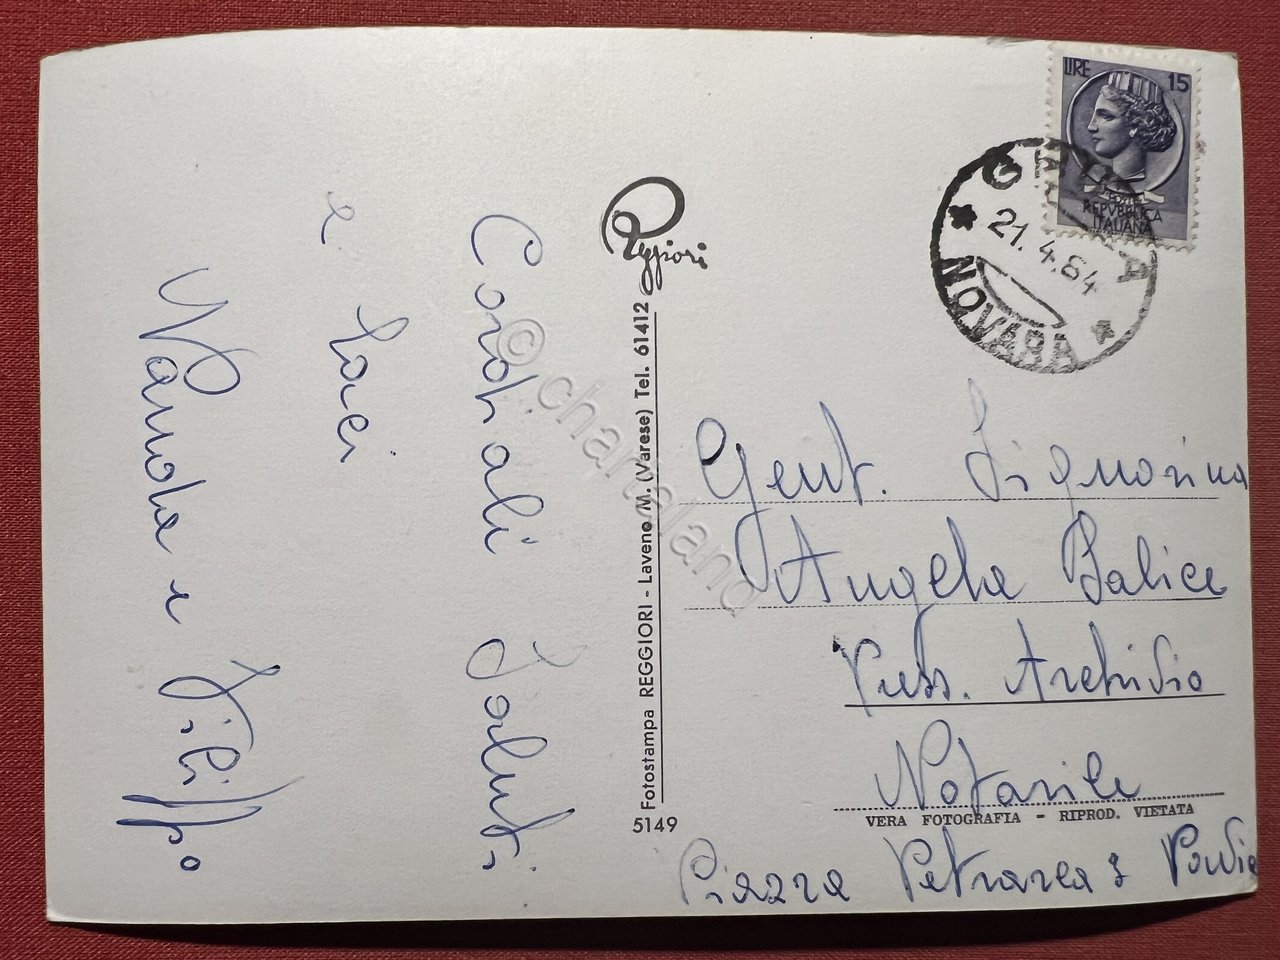 LIRE 15
POSTE
REPVBBLICA
ITALIANA
21.4.64
NOVARA
Reggiori
Cordiali Saluti
e baci
Wanda e Filippo
5149 Fotostampa REGGIORI - Laveno M. (Varese) Tel. 61412
Gent. Signorina
Angela Balice
Press. Archivio
Notarile
VERA FOTOGRAFIA - RIPROD. VIETATA
Piazza Petrarca 3 Pavia
© chartaland